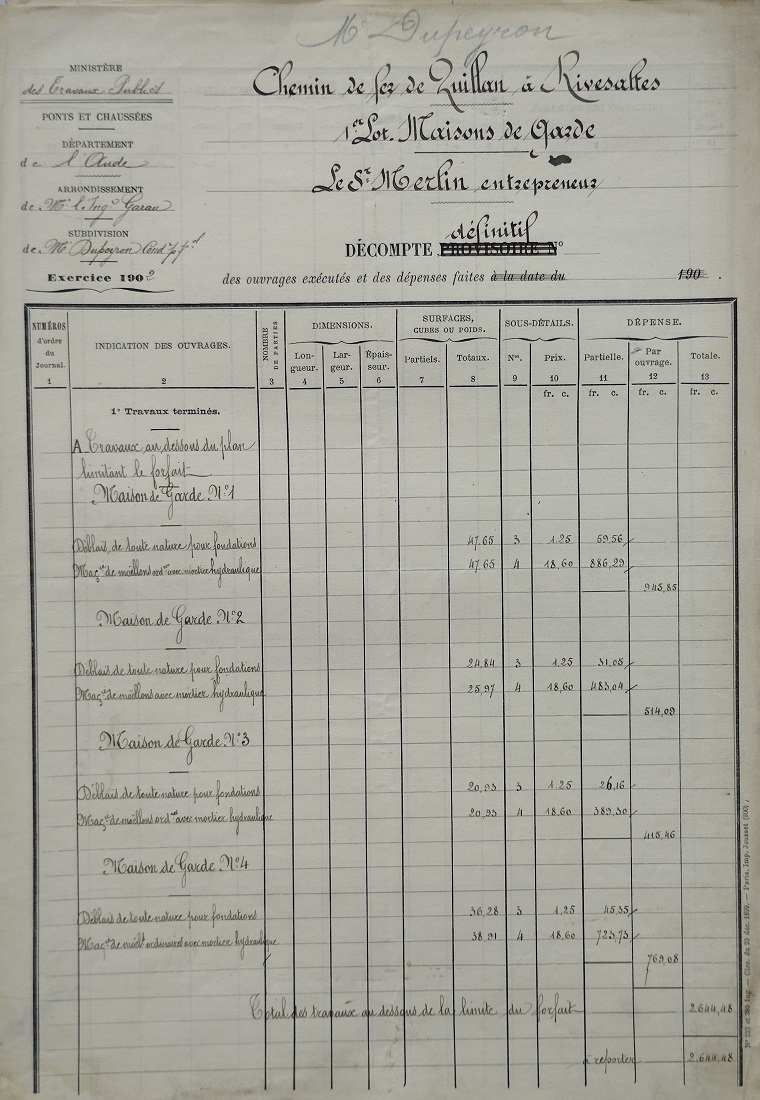 Mr Dupeyron
MINISTÈRE
des Travaux Publics
PONTS ET CHAUSSÉES
DÉPARTEMENT
de l'Aude
ARRONDISSEMENT
de Mr l'Ingr Garau
SUBDIVISION
de Mr Dupeyron Condr ppal
Exercice 1902
Chemin de fer de Quillan à Rivesaltes
1er Lot. Maisons de Garde
Le Sr Merlin entrepreneur
définitif
DÉCOMPTE PROVISOIRE No
des ouvrages exécutés et des dépenses faites à la date du 190 .
NUMÉROS d'ordre du Journal. INDICATION DES OUVRAGES. NOMBRE DE PARTIES DIMENSIONS. SURFACES, CUBES OU POIDS. SOUS-DÉTAILS. DÉPENSE.
Longueur. Largeur. Épaisseur. Partiels. Totaux. Nos. Prix. Partielle. Par ouvrage. Totale.
1 2 3 4 5 6 7 8 9 10 11 12 13
fr. c. fr. c. fr. c. fr. c.
1o Travaux terminés.
A Travaux au dessous du plan
limitant le forfait
Maison de Garde No 1
Déblais de toute nature pour fondations 47.65 3 1.25 59,56
Maçrie de moëllons ordres avec mortier hydraulique 47.65 4 18,60 886,29
945,85
Maison de Garde No 2
Déblais de toute nature pour fondations 24.84 3 1.25 31,05
Maçrie de moëllons avec mortier hydraulique 25,97 4 18,60 483,04
514,09
Maison de Garde No 3
Déblais de toute nature pour fondations 20,93 3 1.25 26,16
Maçrie de moëllons ordres avec mortier hydraulique 20,93 4 18.60 389,30
415,46
Maison de Garde No 4
Déblais de toute nature pour fondations 36,28 3 1,25 45,35
Maçrie de moëlls ordinaires avec mortier hydraulique 38,91 4 18,60 723,73
769,08
Total des travaux au dessous de la limite du forfait 2.644,48
à reporter 2.644,48